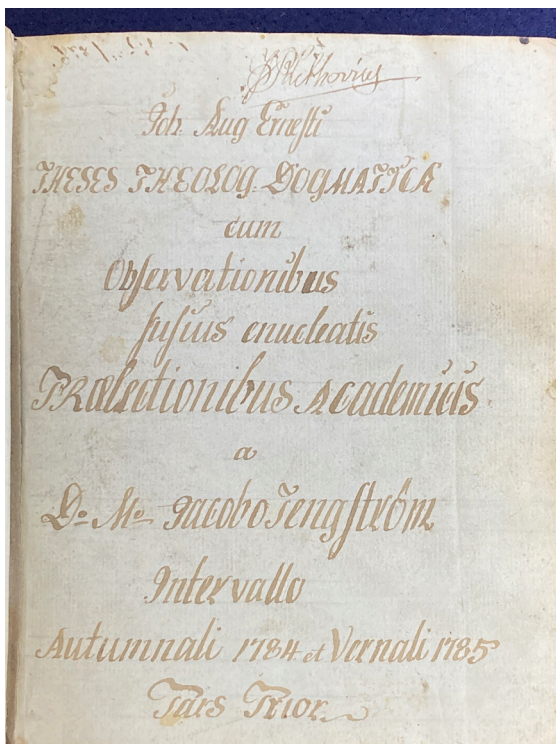 Joh. Aug Ernesti
THESES THEOLOG. DOGMATICÆ
cum
Observationibus
fusius enucleatis
PRælectionibus Academicis
a
Do. Mo. Jacobo Tengström
Intervallo
Autumnali 1784 et Vernali 1785
Pars Prior